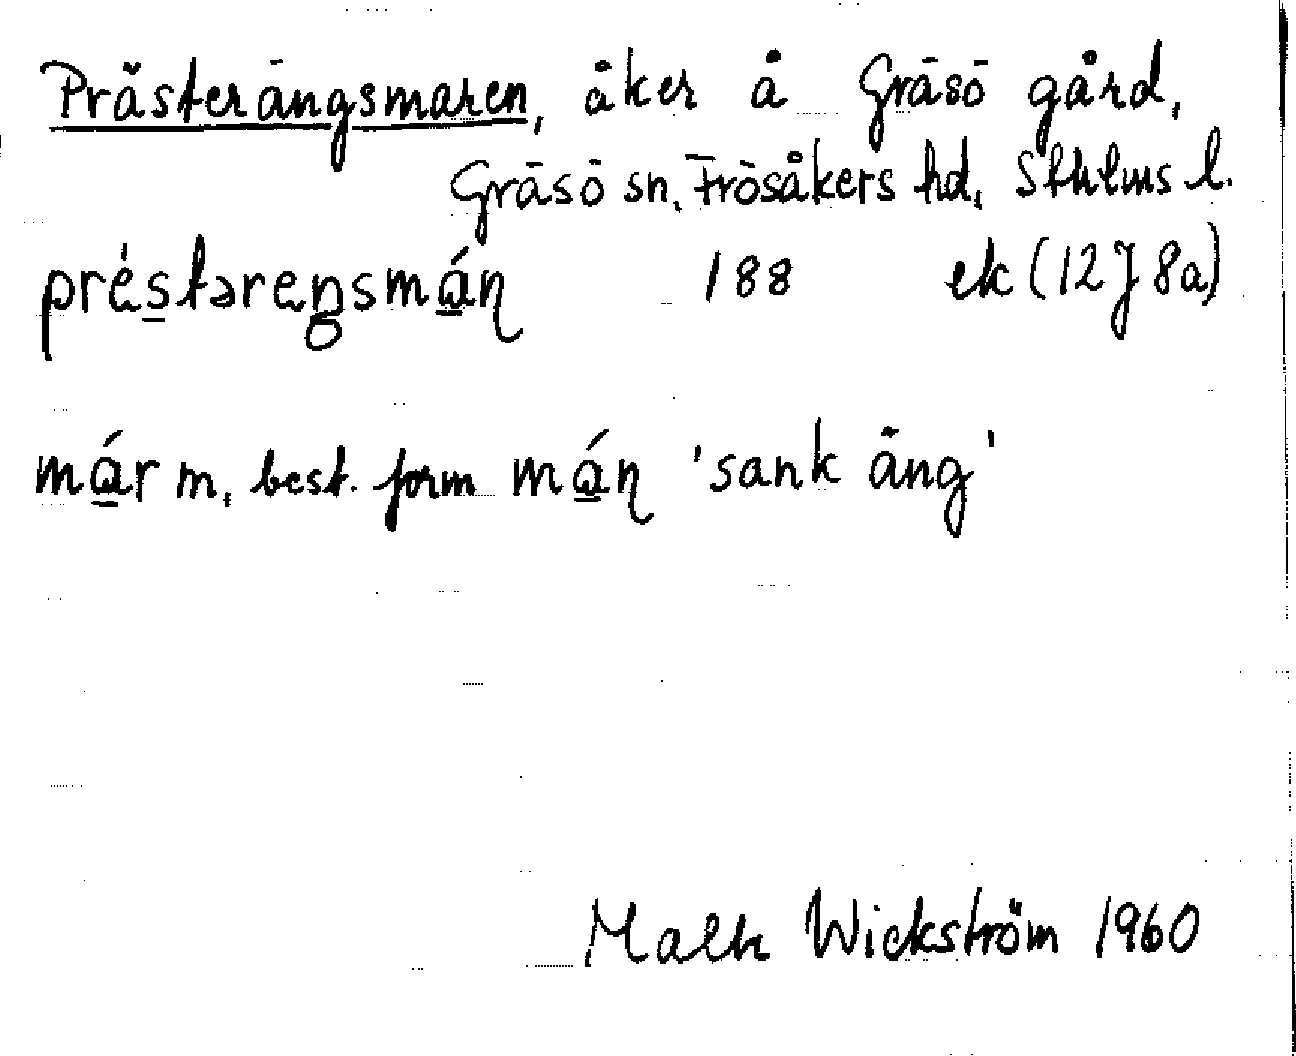 Prästerängsmaren, åker å Gräsö gård,
Gräsö sn, Frösåkers hd, Sthlms l.
préstəreŋsmán 188 ek (12J 8a)
már m, best. form mán 'sank äng'
Wickström 1960